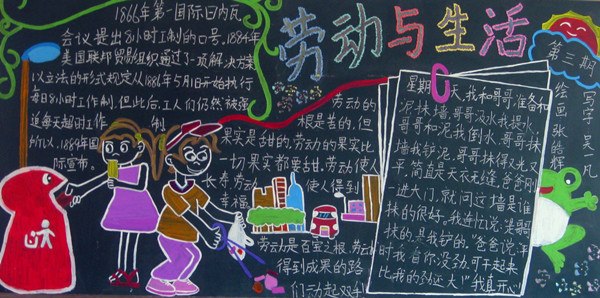 劳动与生活
第三期
写字吴凡
绘画张皓辉
1866年第一国际日内瓦
会议提出8小时工制的口号。1884年
美国联邦贸易组织通过了一项解决方案
以立法的形式规定从1886年5月1日开始执行
每日8小时工作制,但此后,工人们仍然被强
迫每天超时工作
制
所以,1889年国
际宣布。
劳动的
根是苦的,但
果实是甜的,劳动的果实比
一切果实都要甜,劳动使人
长寿,劳动 使人得到
幸福
劳动是百宝之根,劳动
得到成果的路
们动起双手
星期六天,我和哥哥准备和
泥抹墙,哥哥汲水我提水
和泥和泥我倒水,哥哥抹
墙我铲泥,哥哥抹得又光又
平,简直是天衣无缝,爸爸刚
进大门,就问这墙是谁
抹的很好,我连忙说:"哥哥
抹的,是我铲的。"爸爸说:"平
时我看你没劲,可干起来
比我的劲还大!"我真开心